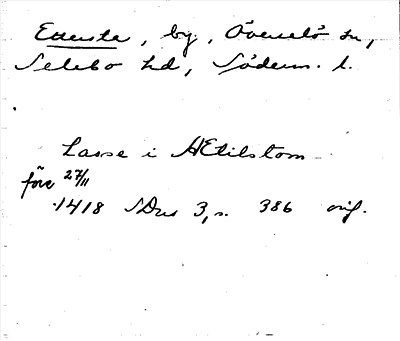 Edersta, by, Överselö sn,
Selebo hd, Söderm. l.
Lasse i AEtilstom
före 27/11
1418 SDns 3, s. 386 orig.